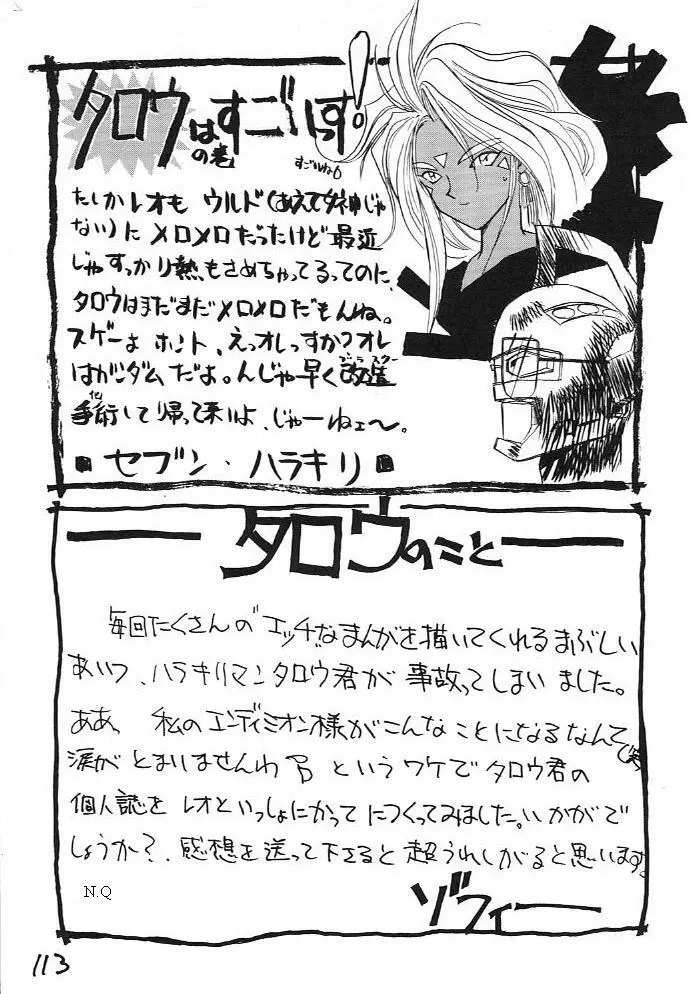 タロウはすごいっす!
の巻
すごいね
たしかレオも ウルド(あえて女神じゃ
ない)に メロメロだったけど 最近
じゃすっかり熱もさめちゃってるってのに、
タロウはまだまだメロメロだもんね。
スゲーよ ホント、えっオレっすか?オレ
はガンダムだよ。んじゃ早く改造
手術して帰って来いよ、じゃーねェ〜。
■セブン・ハラキリ■
タロウのこと
毎回たくさんの"エッチ"なまんがを描いてくれるまぶしい
あいつ、ハラキリマンタロウ君が 事故ってしまいました。
ああ、私のエンディミオン様がこんなことになるなんて
(笑)
涙が とまりませんわ というワケでタロウ君の
個人誌を レオといっしょにかってにつくってみました。いかがで
しょうか?、感想を送って下さると 超うれしがると思います。
N.Q
ゾフィー
113